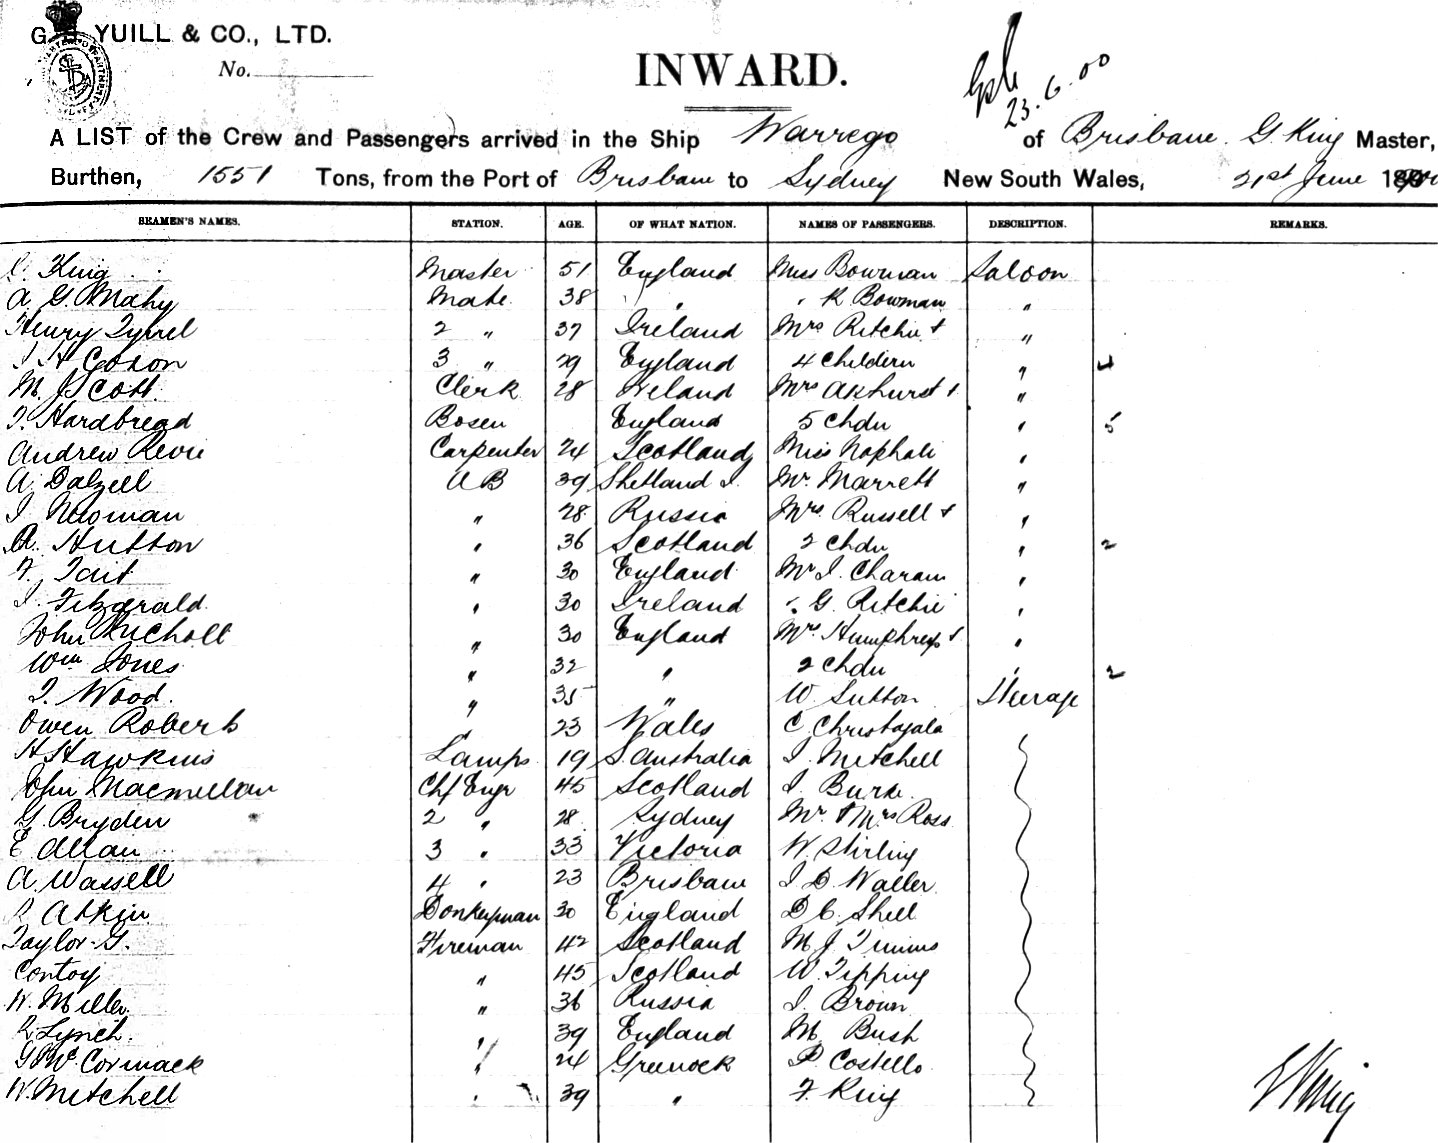 G. S. YUILL & CO., LTD.
No.
INWARD.
23.6.00
A LIST of the Crew and Passengers arrived in the Ship Warrego of Brisbane. G. King Master,
Burthen, 1551 Tons, from the Port of Brisbane to Sydney New South Wales, 21st June
SEAMEN'S NAMES. STATION. AGE. OF WHAT NATION. NAMES OF PASSENGERS. DESCRIPTION. REMARKS.
King Master 51 England Miss Bowman Saloon
A G. Mahy Mate 38 " " R Bowman "
Henry Tyrrel 2 " 37 Ireland Mrs Ritchie + "
3 " 29 England 4 Childern " 4
M. J Scott Clerk 28 Ireland Mrs Akhurst + "
T. Hardbread Bosen England 5 Chdn " 5
Andrew Revie Carpenter 24 Scotland Miss Naphali "
A. Dalzell A B 39 Shetland I. Mr. Marrett "
J Newman " 28 Russia Mrs. Russell + "
A. Hutton " 36 Scotland 2 Chdn " 2
F. Tait " 30 England Mr J. Charam "
J. Fitzgerald " 30 Ireland " G. Ritchie "
John Nicholl " 30 England Mrs Humphreys + "
Wm Jones " 32 " 2 Chdn " 2
T. Wood. " 35 " W Sutton Steerage
Owen Roberts " 23 Wales C
H Hawkins Lamps 19 S. Australia J. Mitchell
John Macmillan Chf Engr 45 Scotland J. Burke
G. Bryden 2 " 28 Sydney Mr + Mrs Ross
E Allan 3 " 33 Victoria W. Stirling
A. Wassell 4 " 23 Brisbane J D Waller
Atkin Donkeyman 30 England D C. Shell
Taylor G. Fireman 42 Scotland M J Timms
Contoy " 45 Scotland W. Tipping
W. Miller " 36 Russia J Brown
Lynch. " 39 England M Bush
G McCormack " 24 Greenock P Costello
W. Mitchell " 39 " F. King
G King